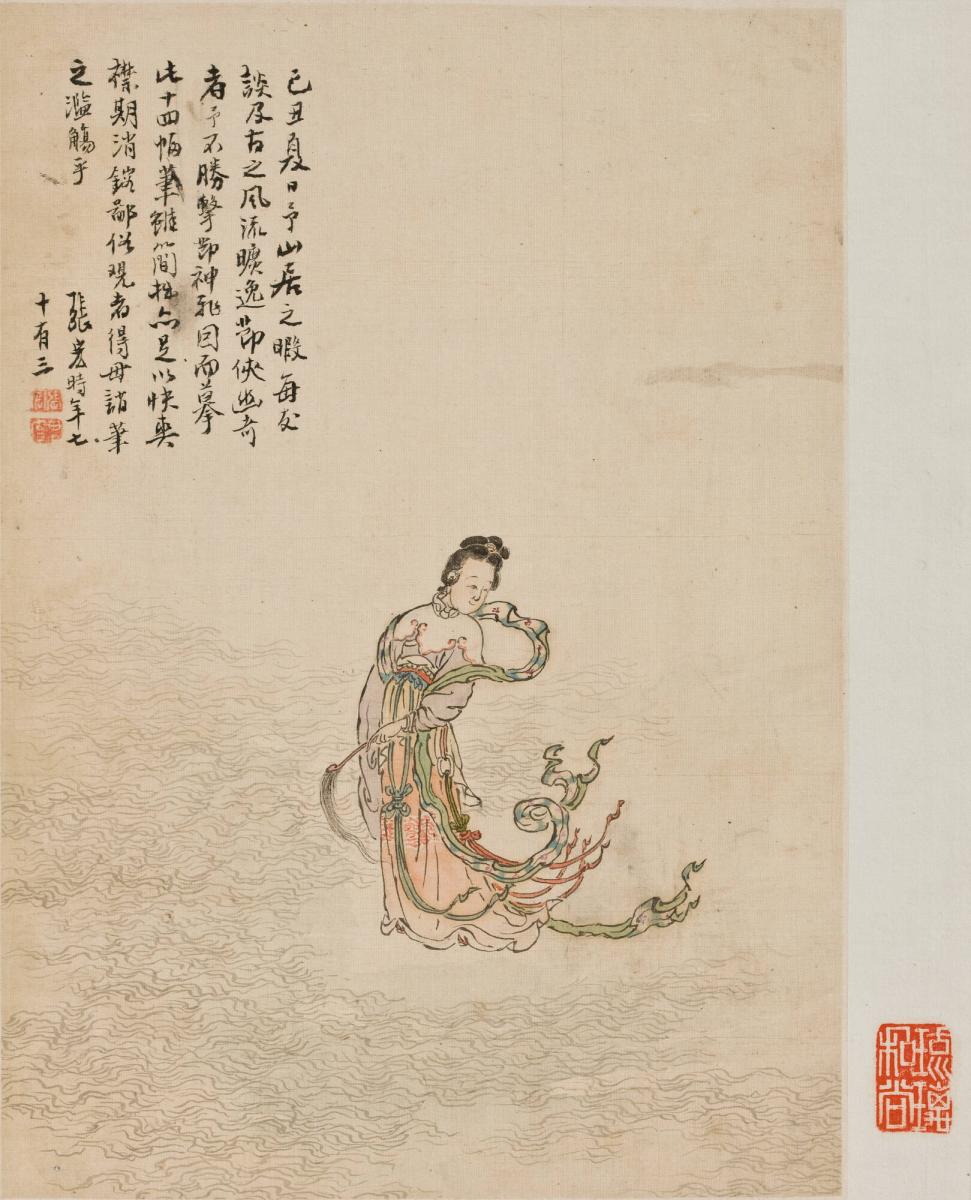 己丑夏日予山居之暇每友
談及古之風流曠逸節俠幽奇
者予不勝擊節神飛因而摹
此十四幅筆雖簡拙亦足以快爽
襟期消鎔鄙俗观者得毋誚筆
之濫觴乎
張宏時年七
十有三
琉璃
和尚